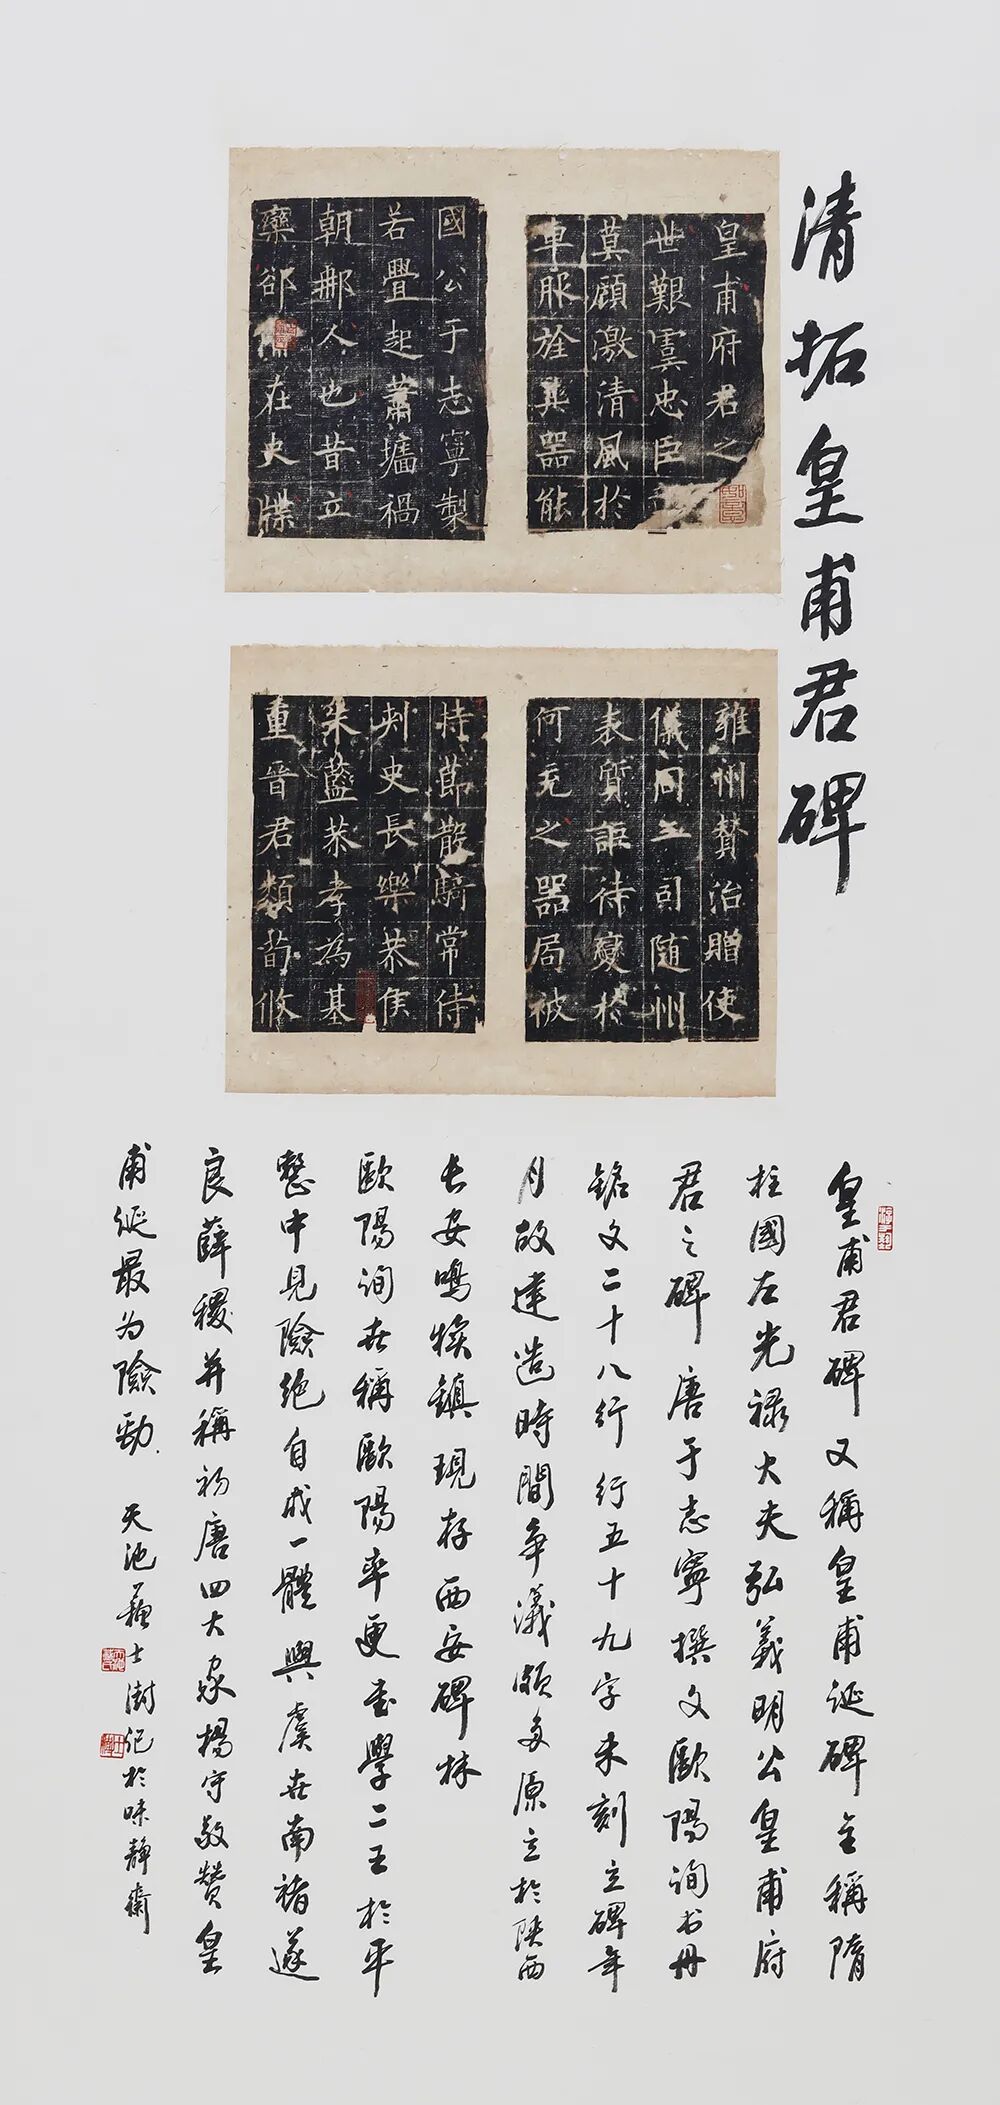 清拓皇甫君碑
皇甫府君之
世艱虞忠臣
莫顧激清風於
車服旌其器能
國公于志寧製
若疊起蕭墻禍
朝那人也昔立
欒郤備在史牒
雍州贊治贈使
儀同三司随州
表質語待變於
何充之器局被
持節散騎常侍
刺史長樂恭侯
朱藍恭孝為基
重晋君類荀攸
皇甫君碑又稱皇甫誕碑全稱隋
柱國左光祿大夫弘義明公皇甫府
君之碑唐于志寧撰文歐陽詢書丹
銘文二十八行行五十九字未刻立碑年
月故建造時間爭議頗多原立於陝西
長安鳴犢鎮現存西安碑林
歐陽詢世稱歐陽率更書學二王於平
整中見險絕自成一體與虞世南褚遂
良薛稷并稱初唐四大家楊守敬贊皇
甫誕最為險勁 天池蘇士澍記於味靜齋